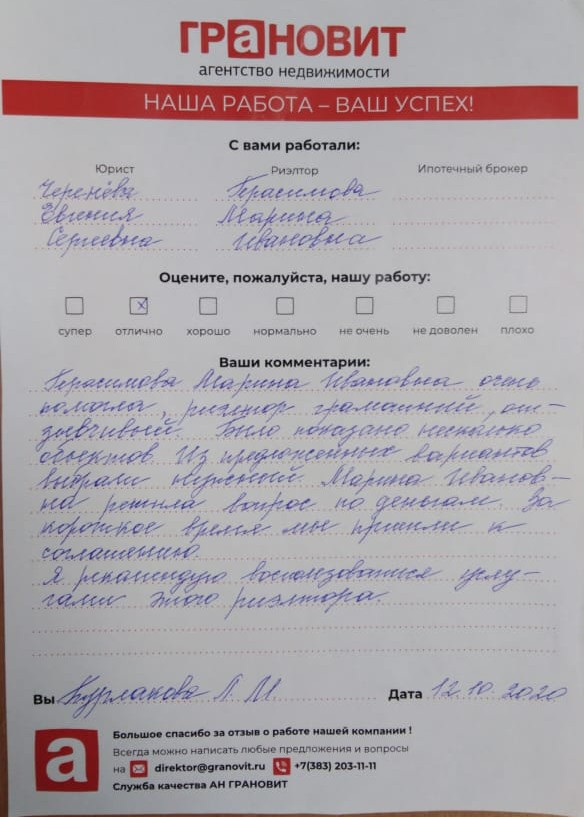 ГРаНОВИТ
агентство недвижимости
НАША РАБОТА – ВАШ УСПЕХ!
С вами работали:
Юрист Риэлтор Ипотечный брокер
Черенёва Герасимова
Евгения Марина
Сергеевна Ивановна
Оцените, пожалуйста, нашу работу:
супер отлично хорошо нормально не очень не доволен плохо
Ваши комментарии:
Герасимова Марина Ивановна очень
помогла, риэлтор грамотный, от-
зывчивый. Было показано несколько
объектов. Из предложенных вариантов
выбрали нужный. Марина Иванов-
на решила вопрос по деньгам. За
короткое время мы пришли к
соглашению.
Я рекомендую воспользоваться услу-
гами этого риэлтора.
Вы Бурлакова Л. М Дата 12.10.2020
а
Большое спасибо за отзыв о работе нашей компании !
Всегда можно написать любые предложения и вопросы
на direktor@granovit.ru +7(383) 203-11-11
Служба качества АН ГРАНОВИТ